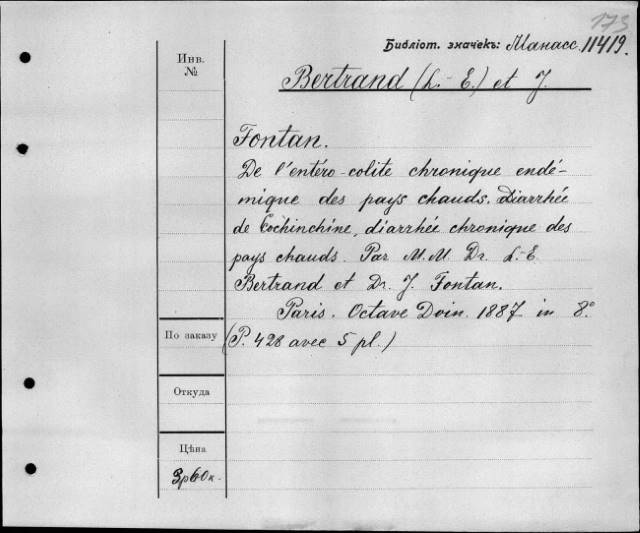 173
Библіот. значекъ: Манасс. 11419.
Инв.
№
Bertrand (L.-E.) et J.
Fontan.
De l'entéro-colite chronique endé-
mique des pays chauds. Diarrhée
de Cochinchine, diarrhée chronique des
pays chauds. Par M.M. Dr. L.-E.
Bertrand et Dr. J. Fontan.
Paris. Octave Doin. 1887 in 8.°
По заказу
(P. 428 avec 5 pl.)
Откуда
Цѣна
3р60к.